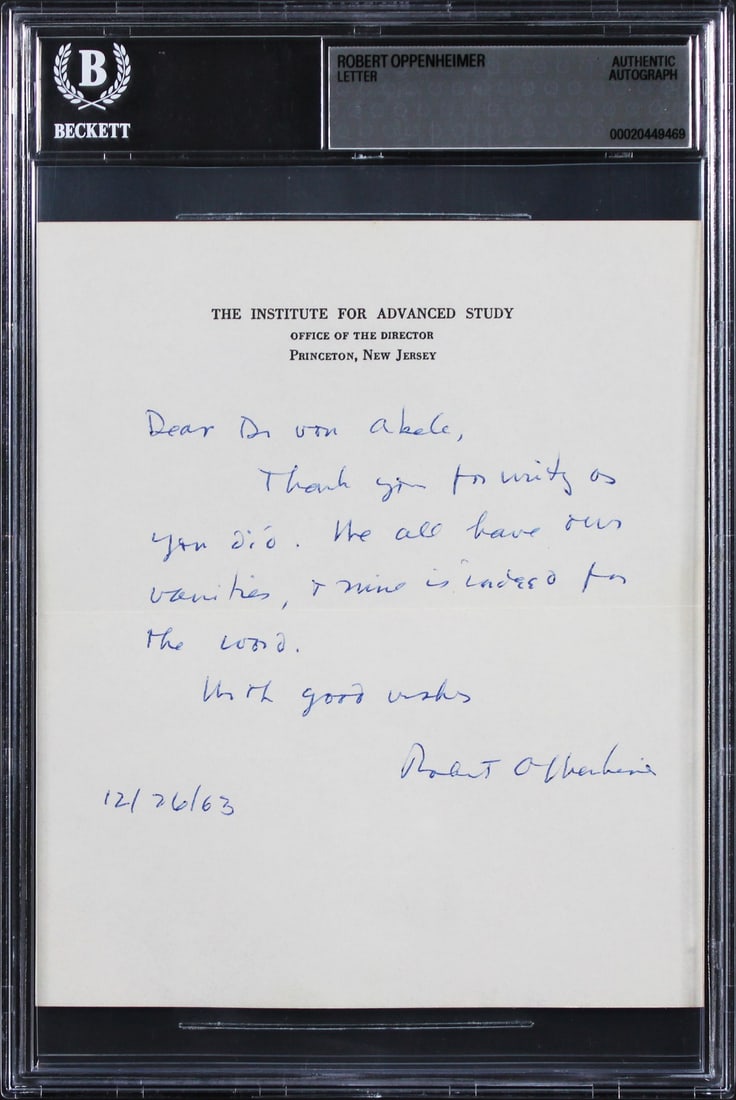 B
BECKETT
ROBERT OPPENHEIMER
LETTER
AUTHENTIC
AUTOGRAPH
00020449469
THE INSTITUTE FOR ADVANCED STUDY
OFFICE OF THE DIRECTOR
PRINCETON, NEW JERSEY
Dear Dr von Abele,
Thank you for writing as
you did. We all have our
vanities, & mine is indeed for
the word.
With good wishes
Robert Oppenheimer
12/26/63